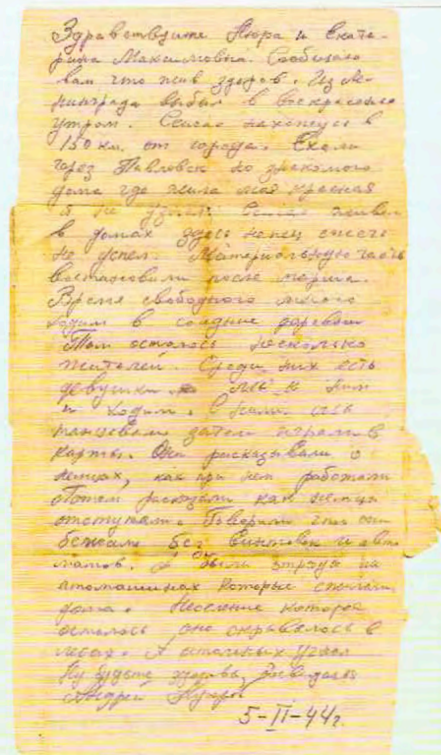 Здравствуйте Нюра и Екате-
рина Максимовна. Сообщаю
вам что жив здоров. Из Ле-
нинграда выбыл в воскресение
утром. Сейчас нахожусь в
150 км. от города. Ехали
через Павловск но знакомого
дома где жила моя
я не узнал. Сейчас живем
в домах здесь немец сжечь
не успел. Материальную часть
востановили после марша.
Время свободного много
ходим в соседние деревни
Там осталось несколько
жителей. Среди них есть
девушки мы к ним
и ходим. С ними
танцевали затем играли в
карты. Они рассказывали о
немцах, как при нем работали
Потом рассказали как немцы
отступали. Говорили что они
бежали без винтовок и авто
матов. А были отряды на
автомашинах которые сжигали
дома. Население которое
осталось оно скрывалось в
лесах. А остальных угнал
Ну будьте здоровы
Андрей
5-II-44г.